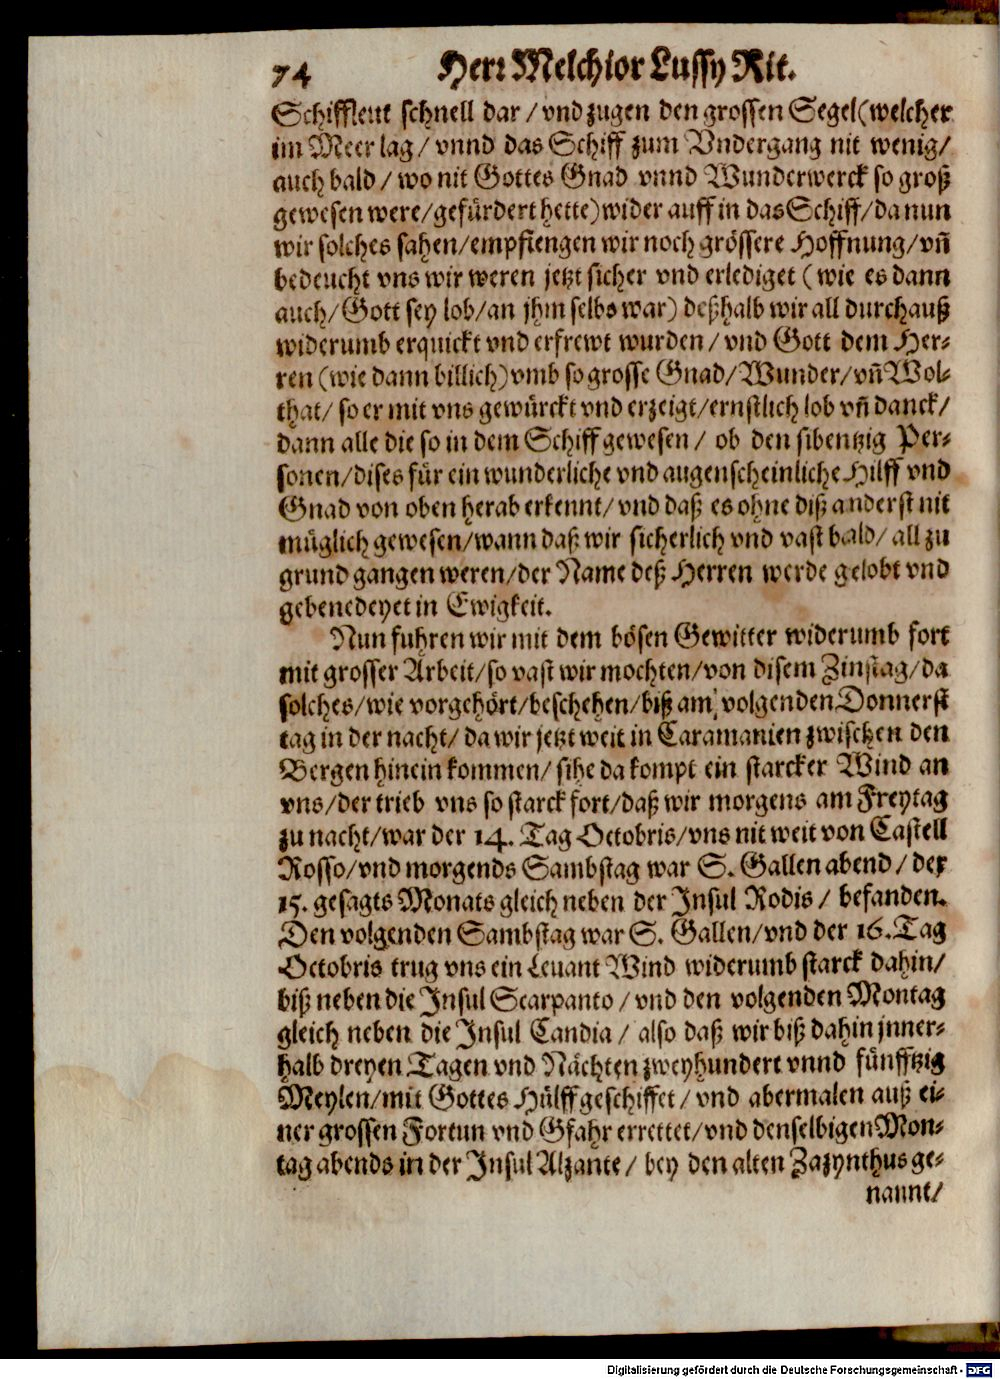 74 Herr Melchior Lussy Rit.
Schiffleut schnell dar / vnd zugen den grossen Segel (welcher
im Meer lag / vnnd das Schiff zum Vndergang nit wenig /
auch bald / wo nit Gottes Gnad vnnd Wunderwerck so groß
gewesen were / gefürdert hette) wider auff in das Schiff / da nun
wir solches sahen / empfiengen wir noch grössere Hoffnung / vñ
bedeucht vns wir weren jetzt sicher vnd erlediget (wie es dann
auch / Gott sey lob / an jhm selbs war) deßhalb wir all durchauß
widerumb erquickt vnd erfrewt wurden / vnd Gott dem Her-
ren (wie dann billich) vmb so grosse Gnad / Wunder / vñ Wol-
that / so er mit vns gewürckt vnd erzeigt / ernstlich lob vñ danck /
dann alle die so in dem Schiff gewesen / ob den sibentzig Per-
sonen / dises für ein wunderliche vnd augenscheinliche Hilff vnd
Gnad von oben herab erkennt / vnd daß es ohne diß anderst nit
müglich gewesen / wann daß wir sicherlich vnd vast bald / all zu
grund gangen weren / der Name deß Herren werde gelobt vnd
gebenedeyet in Ewigkeit.
Nun fuhren wir mit dem bösen Gewitter widerumb fort
mit grosser Arbeit / so vast wir mochten / von disem Zinstag / da
solches / wie vorgehört / beschehen / biß am volgenden Donnerst
tag in der nacht / da wir jetzt weit in Caramanien zwischen den
Bergen hinein kommen / sihe da kompt ein starcker Wind an
vns / der trieb vns so starck fort / daß wir morgens am Freytag
zu nacht / war der 14. Tag Octobris / vns nit weit von Castell
Rosso / vnd morgends Sambstag war S. Gallen abend / der
15. gesagts Monats gleich neben der Insul Rodis / befanden.
Den volgenden Sambstag war S. Gallen / vnd der 16. Tag
Octobris trug vns ein Leuant Wind widerumb starck dahin /
biß neben die Insul Scarpanto / vnd den volgenden Montag
gleich neben die Insul Candia / also daß wir biß dahin jnner-
halb dreyen Tagen vnd Nächten zweyhundert vnnd fünfftzig
Meylen / mit Gottes Hülff geschiffet / vnd abermalen auß ei-
ner grossen Fortun vnd Gfahr errettet / vnd denselbigen Mon-
tag abends in der Insul Alzante / bey den alten Zazynthus ge-
nannt /
Digitalisierung gefördert durch die Deutsche Forschungsgemeinschaft - DFG